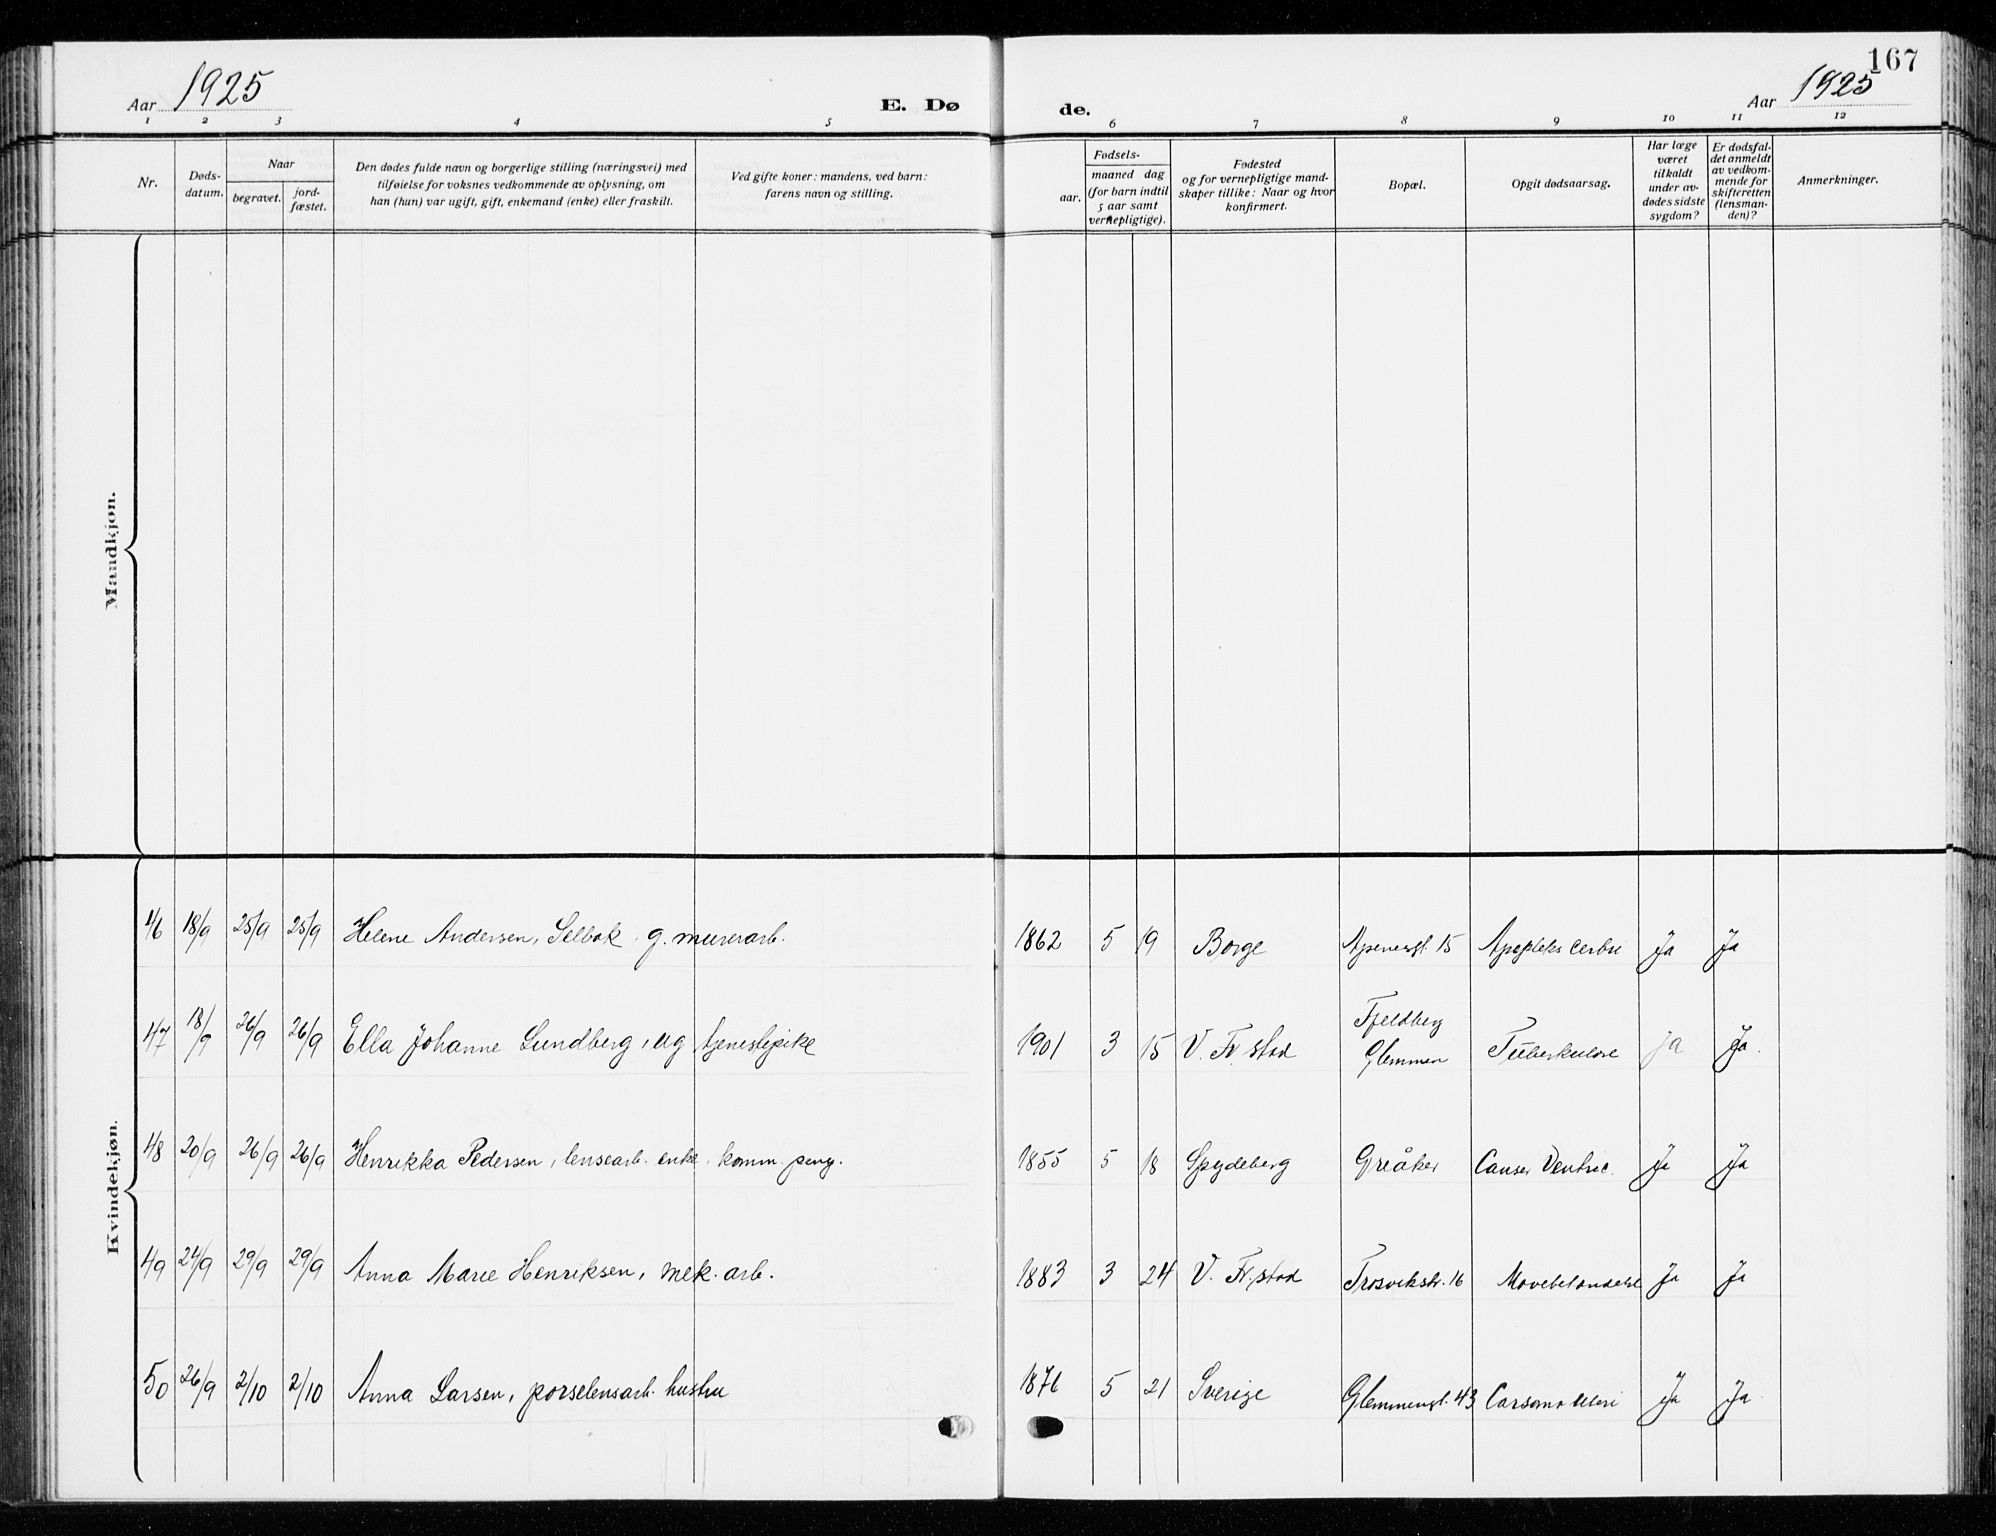 167
Aar 1925
E. Dø
de.
Aar 1925
1 2 3 4 5 6 7 8 9 10 11 12
Nr.
Døds-
datum.
Naar
begravet.
jord-
fæstet.
Den dødes fulde navn og borgerlige stilling (næringsvei) med
tilføielse for voksnes vedkommende av oplysning, om
han (hun) var ugift, gift, enkemand (enke) eller fraskilt.
Ved gifte koner: mandens, ved barn:
farens navn og stilling.
aar.
Fødsels-
maaned dag
(for barn indtil
5 aar samt
vernepligtige).
Fødested
og for vernepligtige mand-
skaper tillike: Naar og hvor
konfirmert.
Bopæl.
Opgit dødsaarsag.
Har læge
været
tilkaldt
under av-
dødes sidste
sygdom?
Er dødsfal-
det anmeldt
av vedkom-
mende for
skifteretten
(lensman-
den)?
Anmerkninger.
Mandkjøn.
Kvindekjøn.
46 18/9 25/9 25/9 Helene Andersen, Selbak. g. murerarb. 1862 5 19 Borge 15 Ja Ja
47 18/9 26/9 26/9 Ella Johanne Lundberg, ug tjenestepike 1901 3 15 V. Fr.stad Fjeldberg
Glemmen Tuberkulose Ja Ja.
48 20/9 26/9 26/9 Henrikka Pedersen, lensearb. enke. komm. peng. 1855 5 18 Spydeberg Greåker Canser Ventric. Ja Ja
49 24/9 29/9 29/9 Anna Marie Henriksen, mek. arb. 1883 3 24 V. Fr.stad Trosvikstr. 16 Ja Ja
50 26/9 2/10 2/10 Anna Larsen, porselensarb. hustru 1876 5 21 Sverige Glemmengt. 43 Ja Ja